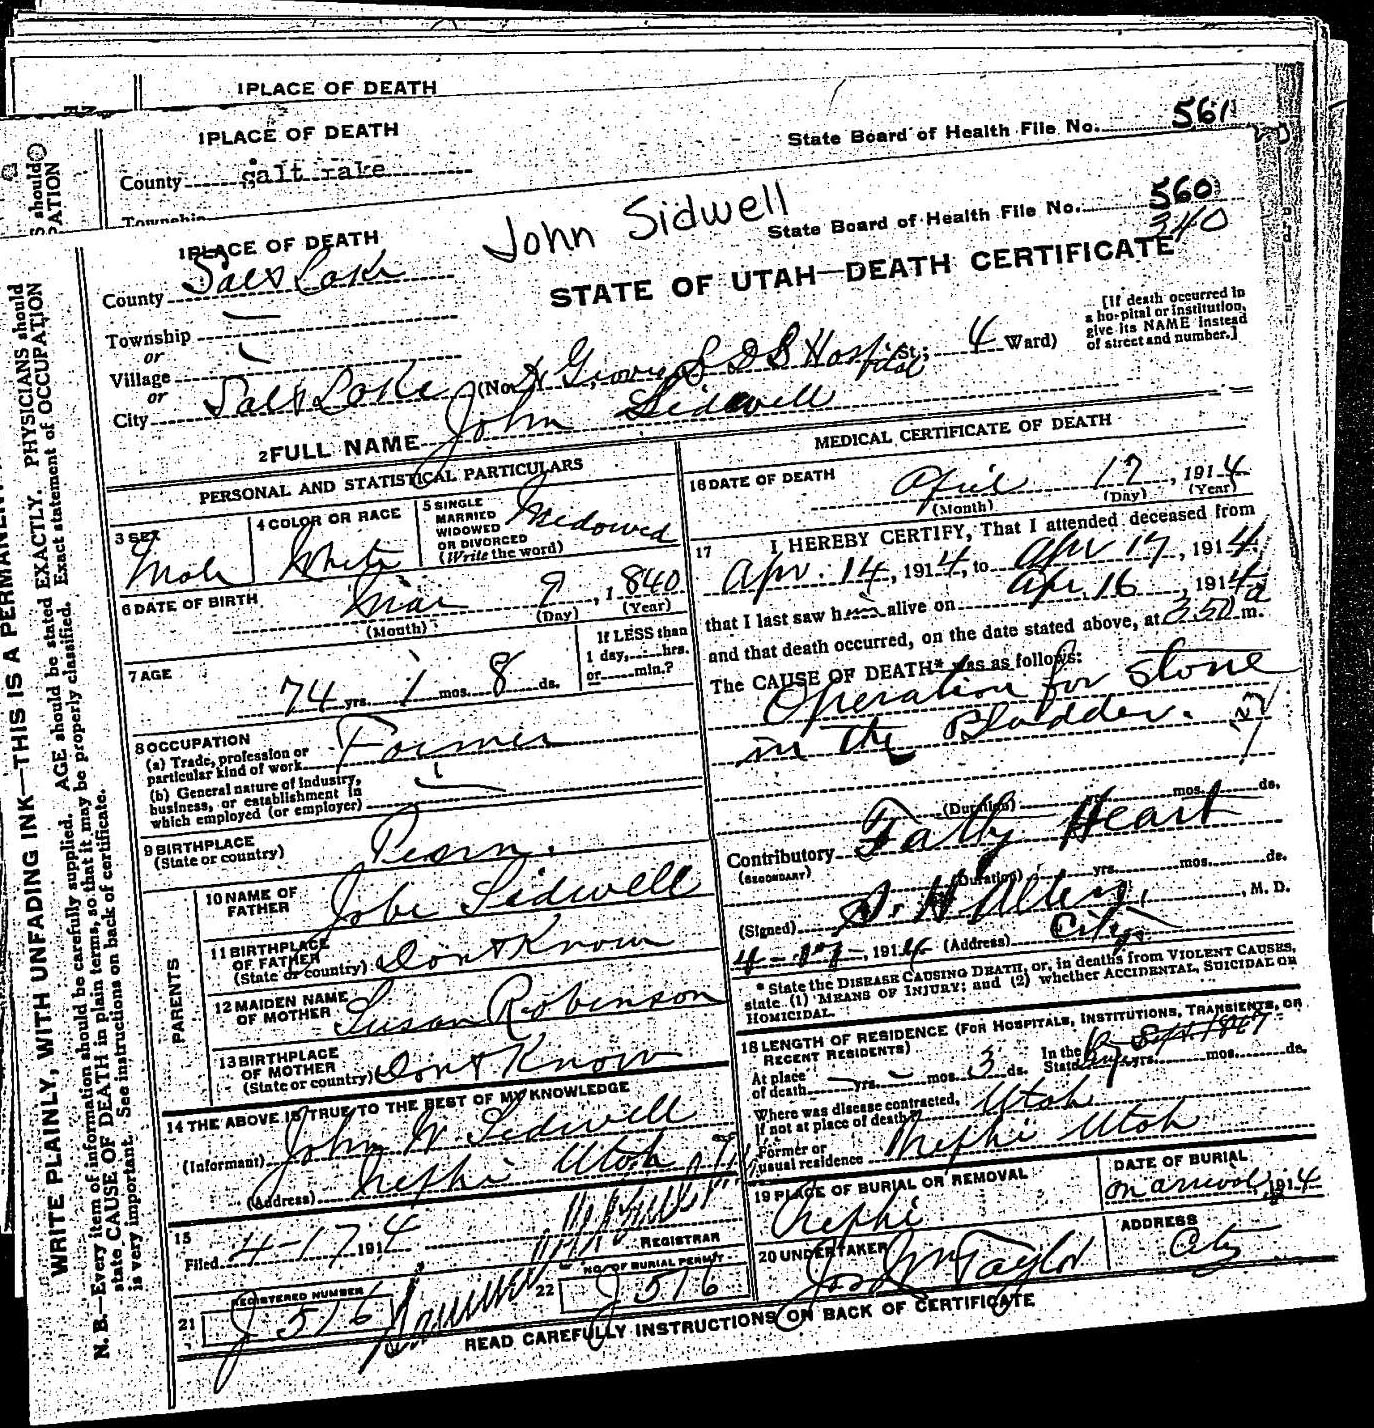 1 PLACE OF DEATH
1 PLACE OF DEATH
State Board of Health File No. 561
County salt lake
Township
John Sidwell
State Board of Health File No. 560
340
1 PLACE OF DEATH
County Salt Lake
STATE OF UTAH—DEATH CERTIFICATE
Township —
or
Village —
or
City Salt Lake (No. L D S Hospital St.; 4 Ward)
[If death occurred in
a hospital or institution,
give its NAME instead
of street and number.]
2 FULL NAME John Sidwell
PERSONAL AND STATISTICAL PARTICULARS
3 SEX
Male
4 COLOR OR RACE
White
5 SINGLE
MARRIED
WIDOWED
OR DIVORCED
(Write the word)
Widowed
6 DATE OF BIRTH
Mar 9, 1840
(Month) (Day) (Year)
7 AGE
74 yrs. 1 mos. 8 ds.
If LESS than
1 day,......hrs.
or......min.?
8 OCCUPATION
(a) Trade, profession or
particular kind of work Farmer
(b) General nature of industry,
business, or establishment in
which employed (or employer)
9 BIRTHPLACE
(State or country)
PARENTS
10 NAME OF
FATHER
Jobe Sidwell
11 BIRTHPLACE
OF FATHER
(State or country) Don't Know
12 MAIDEN NAME
OF MOTHER
Susan Robinson
13 BIRTHPLACE
OF MOTHER
(State or country) Don't Know
14 THE ABOVE IS TRUE TO THE BEST OF MY KNOWLEDGE
(Informant) John W. Sidwell
(Address) Nephi Utah
15
Filed 4-17 1914
REGISTRAR
REGISTERED NUMBER
21 J 516
22 NO. OF BURIAL PERMIT
J 516
MEDICAL CERTIFICATE OF DEATH
16 DATE OF DEATH
April 17, 1914
(Month) (Day) (Year)
17 I HEREBY CERTIFY, That I attended deceased from
Apr. 14, 1914, to Apr 17, 1914
that I last saw him alive on Apr. 16, 1914
and that death occurred, on the date stated above, at 350 a m.
The CAUSE OF DEATH* was as follows:
Operation for stone
in the Bladder.
(Duration) yrs. mos. ds.
Contributory Fatty Heart
(SECONDARY)
(Duration) yrs. mos. ds.
(Signed) , M. D.
4-17-, 1914 (Address) City
* State the DISEASE CAUSING DEATH, or, in deaths from VIOLENT CAUSES,
state (1) MEANS OF INJURY; and (2) whether ACCIDENTAL, SUICIDAL OR
HOMICIDAL.
18 LENGTH OF RESIDENCE (FOR HOSPITALS, INSTITUTIONS, TRANSIENTS, OR
RECENT RESIDENTS)
At place
of death — yrs. — mos. 3 ds.
In the
State yrs. mos. ds.
Sept. 1867
Where was disease contracted,
if not at place of death? Utah
Former or
usual residence Nephi Utah
19 PLACE OF BURIAL OR REMOVAL
Nephi
DATE OF BURIAL
on arrival, 1914
20 UNDERTAKER
Jos Wm Taylor
ADDRESS
City
READ CAREFULLY INSTRUCTIONS ON BACK OF CERTIFICATE
WRITE PLAINLY, WITH UNFADING INK—THIS IS A PERMANENT
N. B.—Every item of information should be carefully supplied. AGE should be stated EXACTLY. PHYSICIANS should
state CAUSE OF DEATH in plain terms, so that it may be properly classified. Exact statement of OCCUPATION
is very important. See instructions on back of certificate.